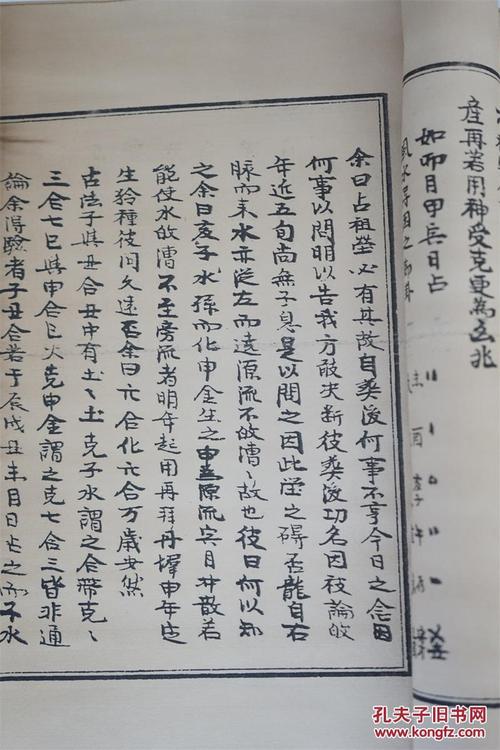 產再若用神受克更為凶兆
如卯月甲辰日占
余曰占祖塋必有其故自葬後何事不亨今日之念因
何事以問明以告我方敢决断彼葬後功名因被論故
年近五旬尚無子息是以問之因此塋之碍否龍自右
脉而来水亦従左而遶源流不故漕故也彼曰何以知
之余曰亥子水孫而化申金生之申源流宾月井散若
能使水故漕不至旁流者明年起用再拜丹墀申年
生於種彼问久遠否余曰六合化六合万歲安然
古法子與丑合丑中有土土克子水謂之合帶克
三合七巳與申合巳火克申金謂之克七合三皆非通
論余得驗者子丑合若于辰戌丑未月日占之而子水
孔夫子旧书网
www.kongfz.com